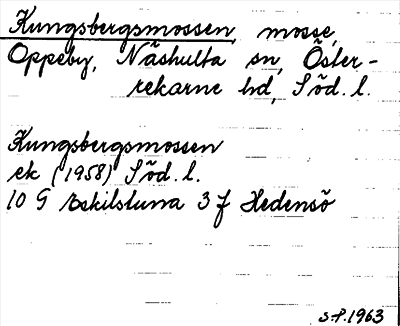 Kungsbergsmossen, mosse,
Oppeby, Näshulta sn, Öster-
rekarne hd, Söd. l.
Kungsbergsmossen
ek (1958) Söd. l.
10 G Eskilstuna 3 f Hedensö
S.P. 1963